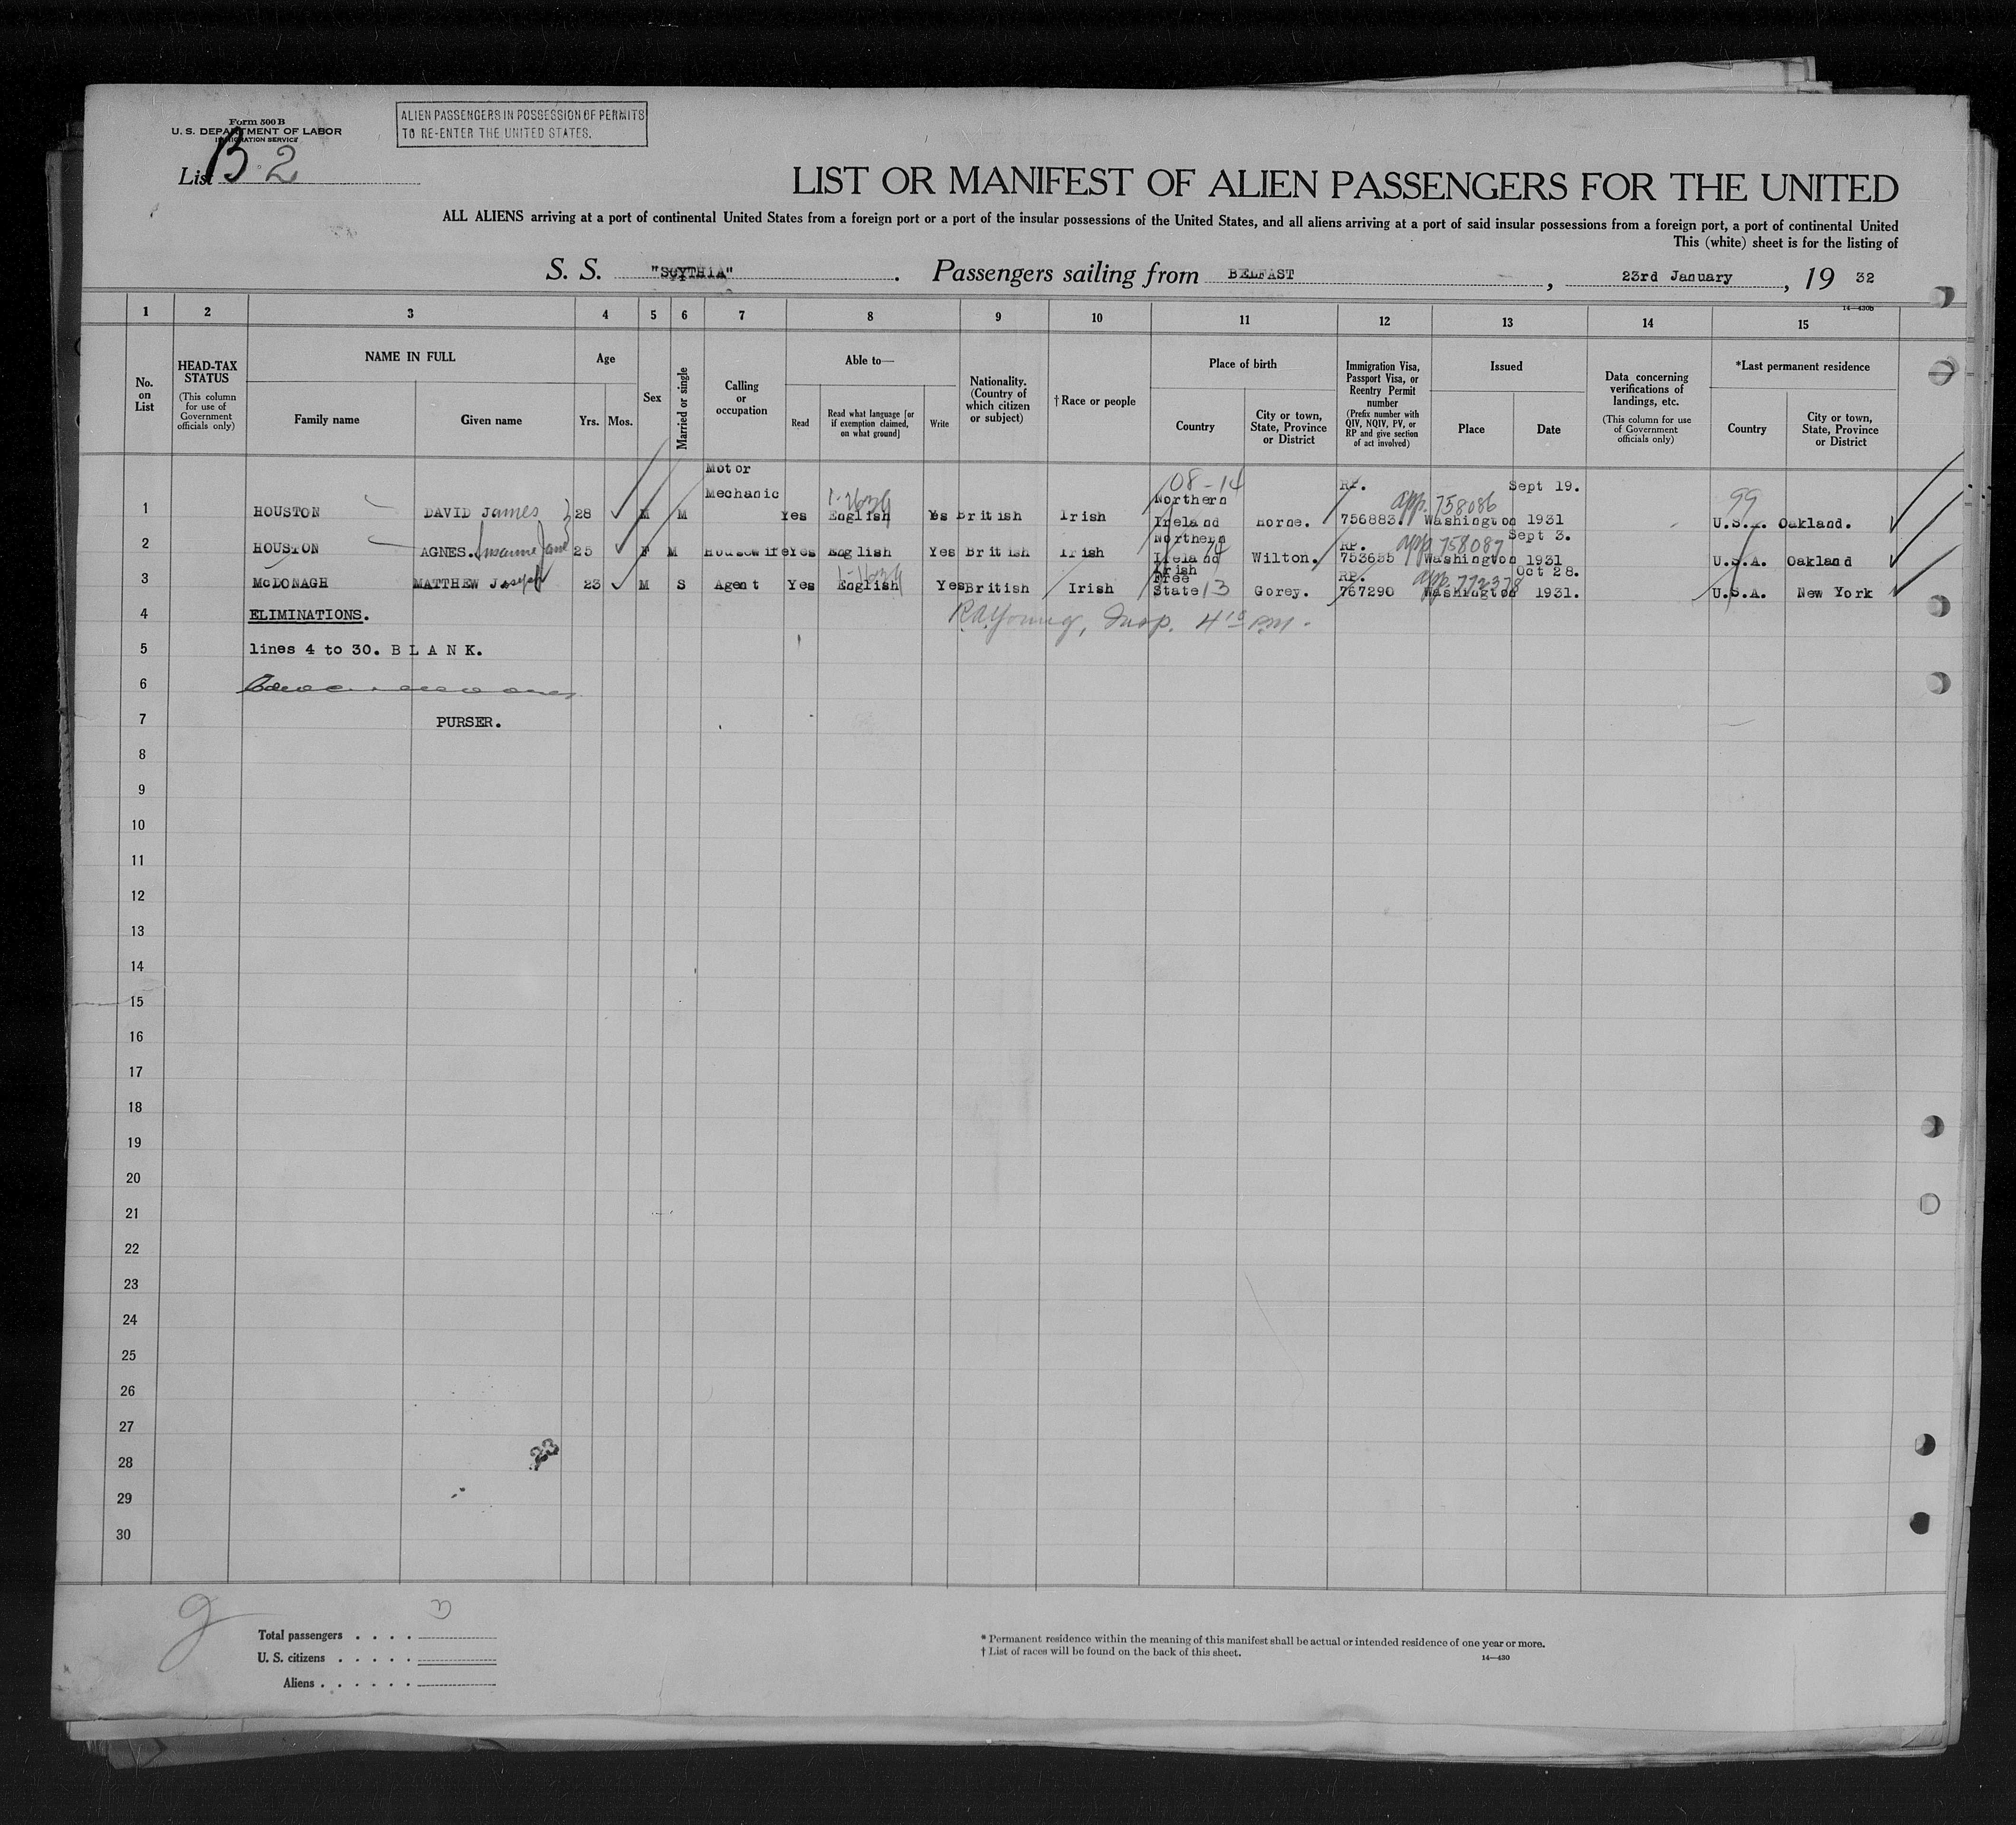 Form 500 B
U. S. DEPARTMENT OF LABOR
IMMIGRATION SERVICE
ALIEN PASSENGERS IN POSSESSION OF PERMITS
TO RE-ENTER THE UNITED STATES.
List B 2
LIST OR MANIFEST OF ALIEN PASSENGERS FOR THE UNITED
ALL ALIENS arriving at a port of continental United States from a foreign port or a port of the insular possessions of the United States, and all aliens arriving at a port of said insular possessions from a foreign port, a port of continental United
This (white) sheet is for the listing of
S. S. "SCYTHIA". Passengers sailing from BELFAST, 23rd January, 19 32
14—430b
1 2 3 4 5 6 7 8 9 10 11 12 13 14 15
No. on List
HEAD-TAX STATUS
(This column for use of Government officials only)
NAME IN FULL
Family name Given name
Age
Yrs. Mos.
Sex
Married or single
Calling or occupation
Able to—
Read
Read what language [or if exemption claimed, on what ground]
Write
Nationality. (Country of which citizen or subject)
† Race or people
Place of birth
Country
City or town, State, Province or District
Immigration Visa, Passport Visa, or Reentry Permit number
(Prefix number with QIV, NQIV, PV, or RP and give section of act involved)
Issued
Place Date
Data concerning verifications of landings, etc.
(This column for use of Government officials only)
*Last permanent residence
Country
City or town, State, Province or District
Motor 08-14 RP. Sept 19. 99
Mechanic Northern app. 758086
1 HOUSTON DAVID James 28 M M Yes English Yes British Irish Ireland 756883. Washington 1931 U.S.A. Oakland.
Northern 14 RP. app 758087 Sept 3.
2 HOUSTON AGNES. Susanne Jane 25 F M Housewife Yes English Yes British Irish Ireland Wilton. 753655 Washington 1931 U.S.A. Oakland
Irish Free RP. app. 772378 Oct 28.
3 McDONAGH MATTHEW Joseph 23 M S Agent Yes English Yes British Irish State 13 Gorey. 767290 Washington 1931. U.S.A. New York
4 ELIMINATIONS. R.A. Young, Insp. 4 10 PM.
5 lines 4 to 30. B L A N K.
6
7 PURSER.
8
9
10
11
12
13
14
15
16
17
18
19
20
21
22
23
24
25
26
27
28
29
30
Total passengers . . . .
U. S. citizens . . . . .
Aliens . . . . . .
* Permanent residence within the meaning of this manifest shall be actual or intended residence of one year or more.
† List of races will be found on the back of this sheet.
14—430